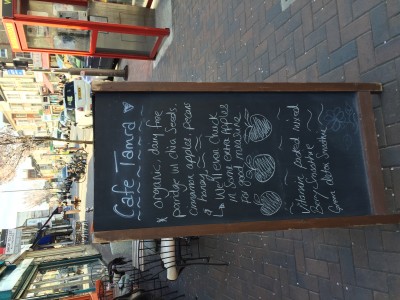 Cafe Tamra
x organic, dairy free
porridge w/ chia Seeds,
cinnamon apples, pecans
& honey
↳ We'll even chuck
in some extra apples
for good measure
Vitamin packed mixed
Berry smoothie
Green detox Smoothie